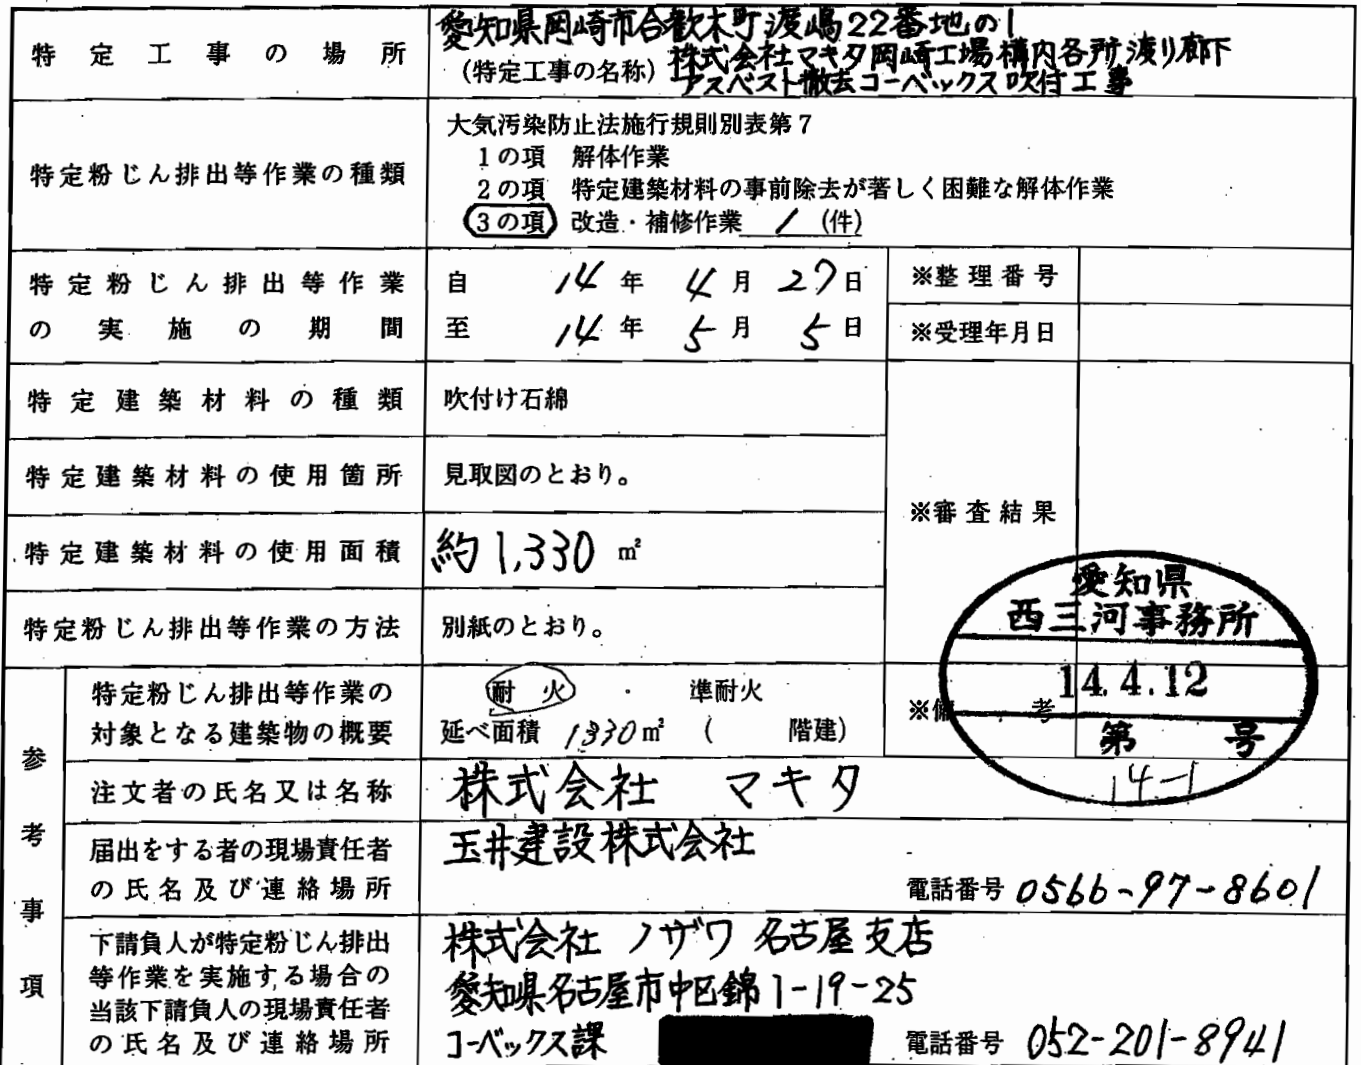 特定工事の場所
愛知県岡崎市合歓木町渡嶋22番地の1
(特定工事の名称) 株式会社マキタ岡崎工場構内各所渡り廊下
アスベスト撤去コーベックス吹付工事
特定粉じん排出等作業の種類
大気汚染防止法施行規則別表第7
1の項 解体作業
2の項 特定建築材料の事前除去が著しく困難な解体作業
3の項 改造・補修作業 1 (件)
特定粉じん排出等作業
の実施の期間
自 14年 4月 27日
至 14年 5月 5日
※整理番号
※受理年月日
特定建築材料の種類
吹付け石綿
特定建築材料の使用箇所
見取図のとおり。
※審査結果
特定建築材料の使用面積
約1,330 m²
特定粉じん排出等作業の方法
別紙のとおり。
愛知県
西三河事務所
14.4.12
第 号
14-1
参考事項
特定粉じん排出等作業の
対象となる建築物の概要
耐火 ・ 準耐火
延べ面積 1330m² ( 階建)
※備考
注文者の氏名又は名称
株式会社 マキタ
届出をする者の現場責任者
の氏名及び連絡場所
玉井建設株式会社
電話番号 0566-97-8601
下請負人が特定粉じん排出
等作業を実施する場合の
当該下請負人の現場責任者
の氏名及び連絡場所
株式会社 ノザワ 名古屋支店
愛知県名古屋市中区錦1-19-25
コーベックス課
電話番号 052-201-8941